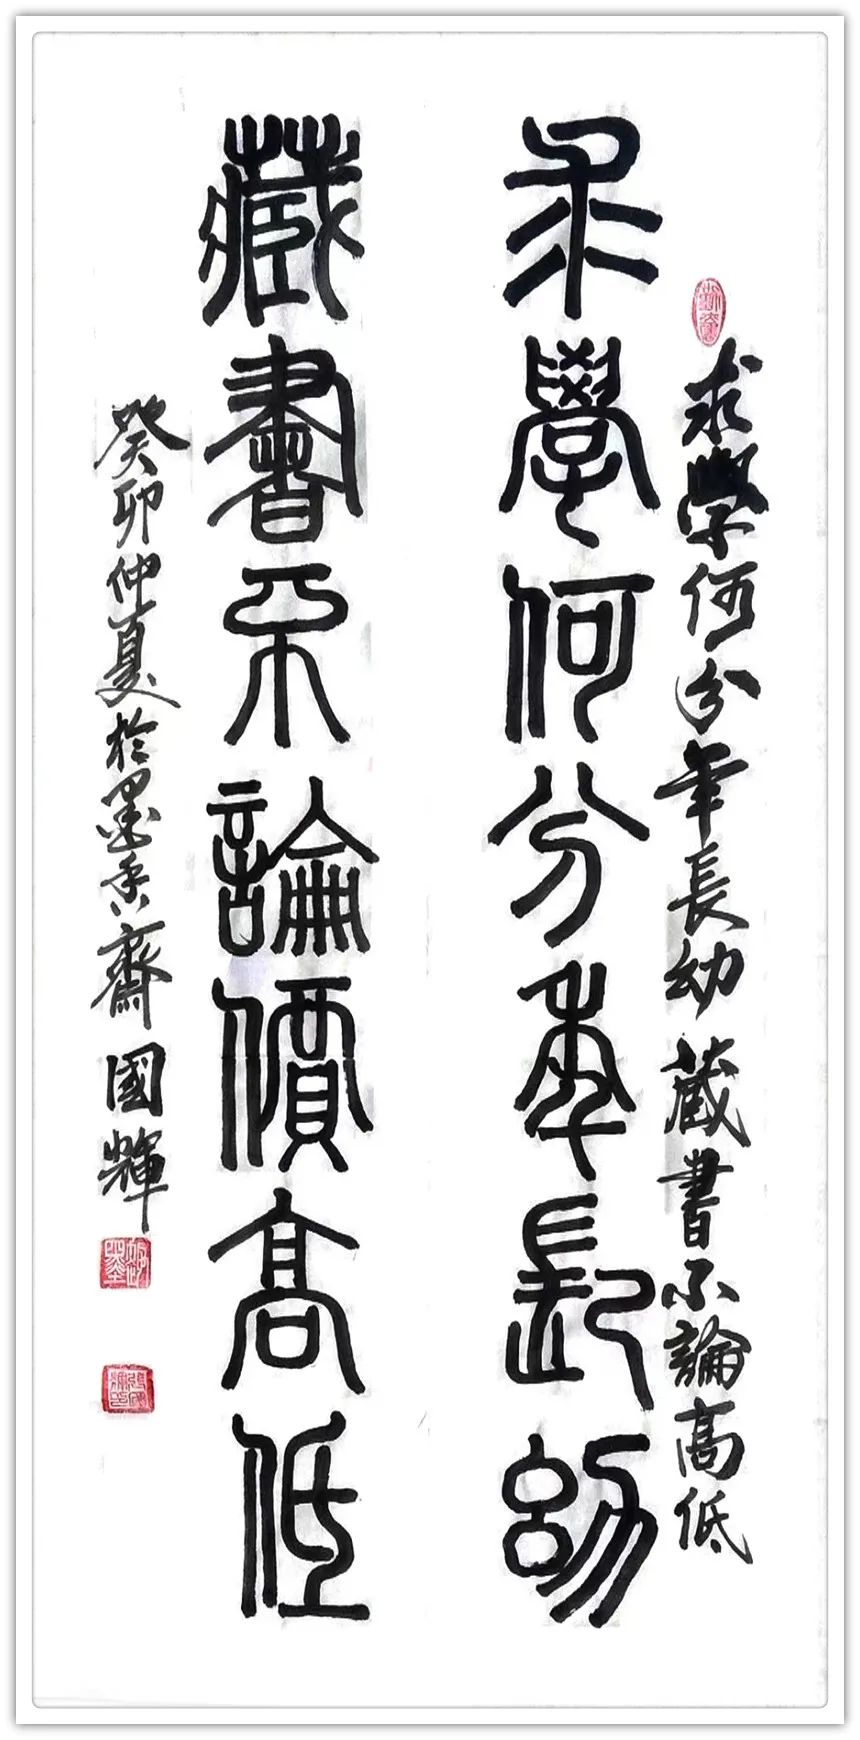 求學何分年長幼藏書不論高低
求學何分年長幼
藏書不論價高低
癸卯仲夏於墨香齋國輝